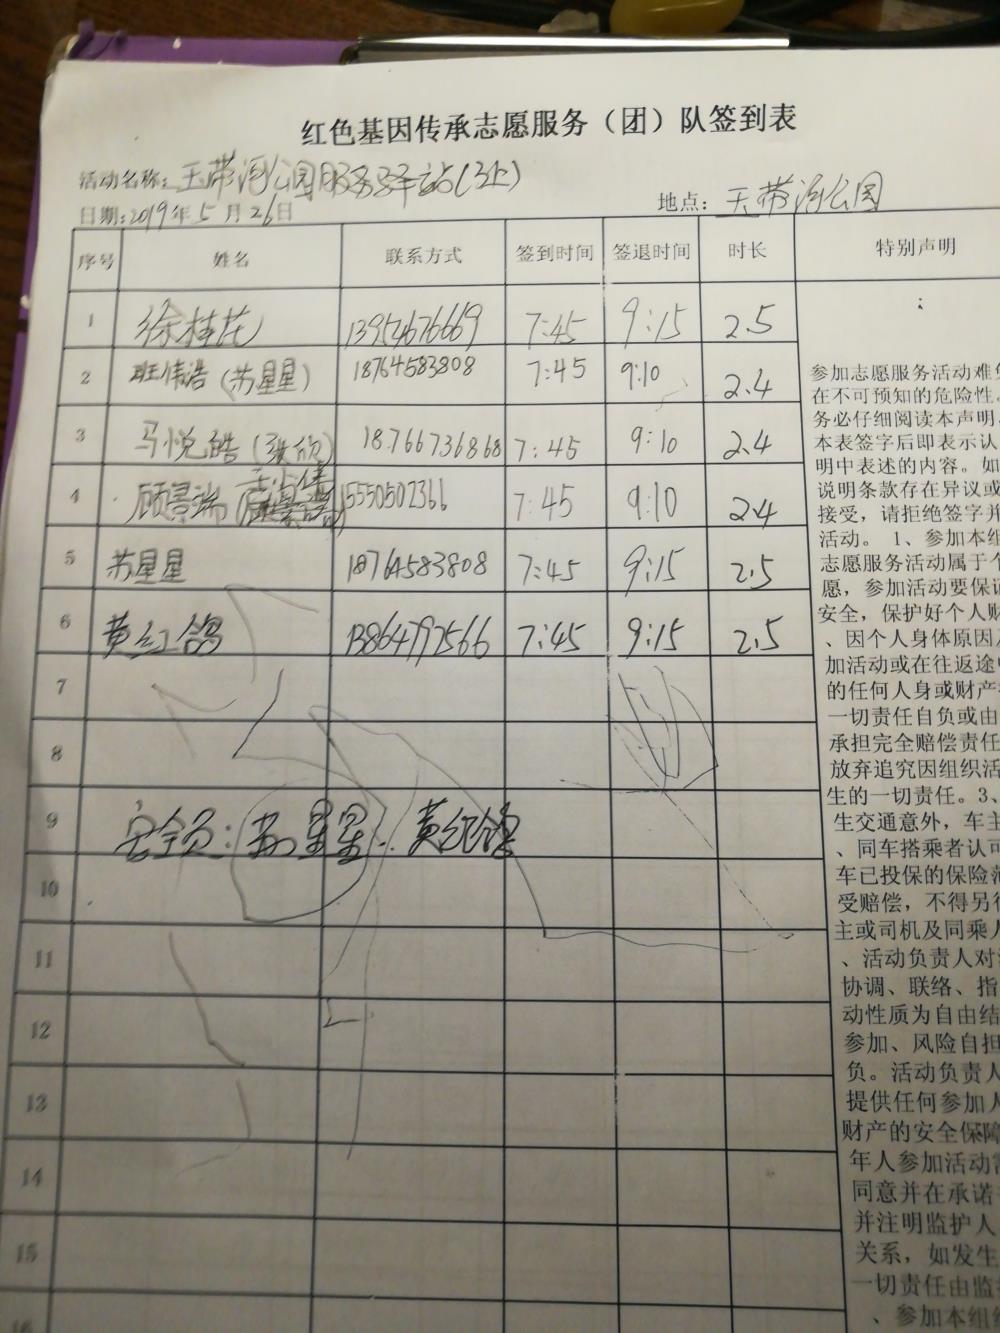 红色基因传承志愿服务（团）队签到表
活动名称：玉带河公园服务驿站（3上）
日期：2019年5月26日 地点：玉带河公园
序号 姓名 联系方式 签到时间 签退时间 时长 特别声明
1 徐桂花 13954676669 7:45 9:15 2.5
2 班伟浩（苏星星） 18764583808 7:45 9:10 2.4
3 马悦皓 18766736868 7:45 9:10 2.4
4 顾景瑞 15550502366 7:45 9:10 2.4
5 苏星星 18764583808 7:45 9:15 2.5
6 黄红鸽 13864797566 7:45 9:15 2.5
7
8
9 安全员：苏星星 黄红鸽
10
11
12
13
14
15
16
：
参加志愿服务活动难免
在不可预知的危险性。
务必仔细阅读本声明
本表签字后即表示认
明中表述的内容。如
说明条款存在异议或
接受，请拒绝签字并
活动。 1、参加本组
志愿服务活动属于个
愿，参加活动要保证
安全，保护好个人财
、因个人身体原因
加活动或在往返途
的任何人身或财产
一切责任自负或由
承担完全赔偿责任
放弃追究因组织活
生的一切责任。3、
生交通意外，车主
、同车搭乘者认可
车已投保的保险范
受赔偿，不得另行
主或司机及同乘人
、活动负责人对
协调、联络、指
动性质为自由结
参加、风险自担
负。活动负责人
提供任何参加人
财产的安全保障
年人参加活动需
同意并在承诺
并注明监护人
关系，如发生
一切责任由监
、参加本组织